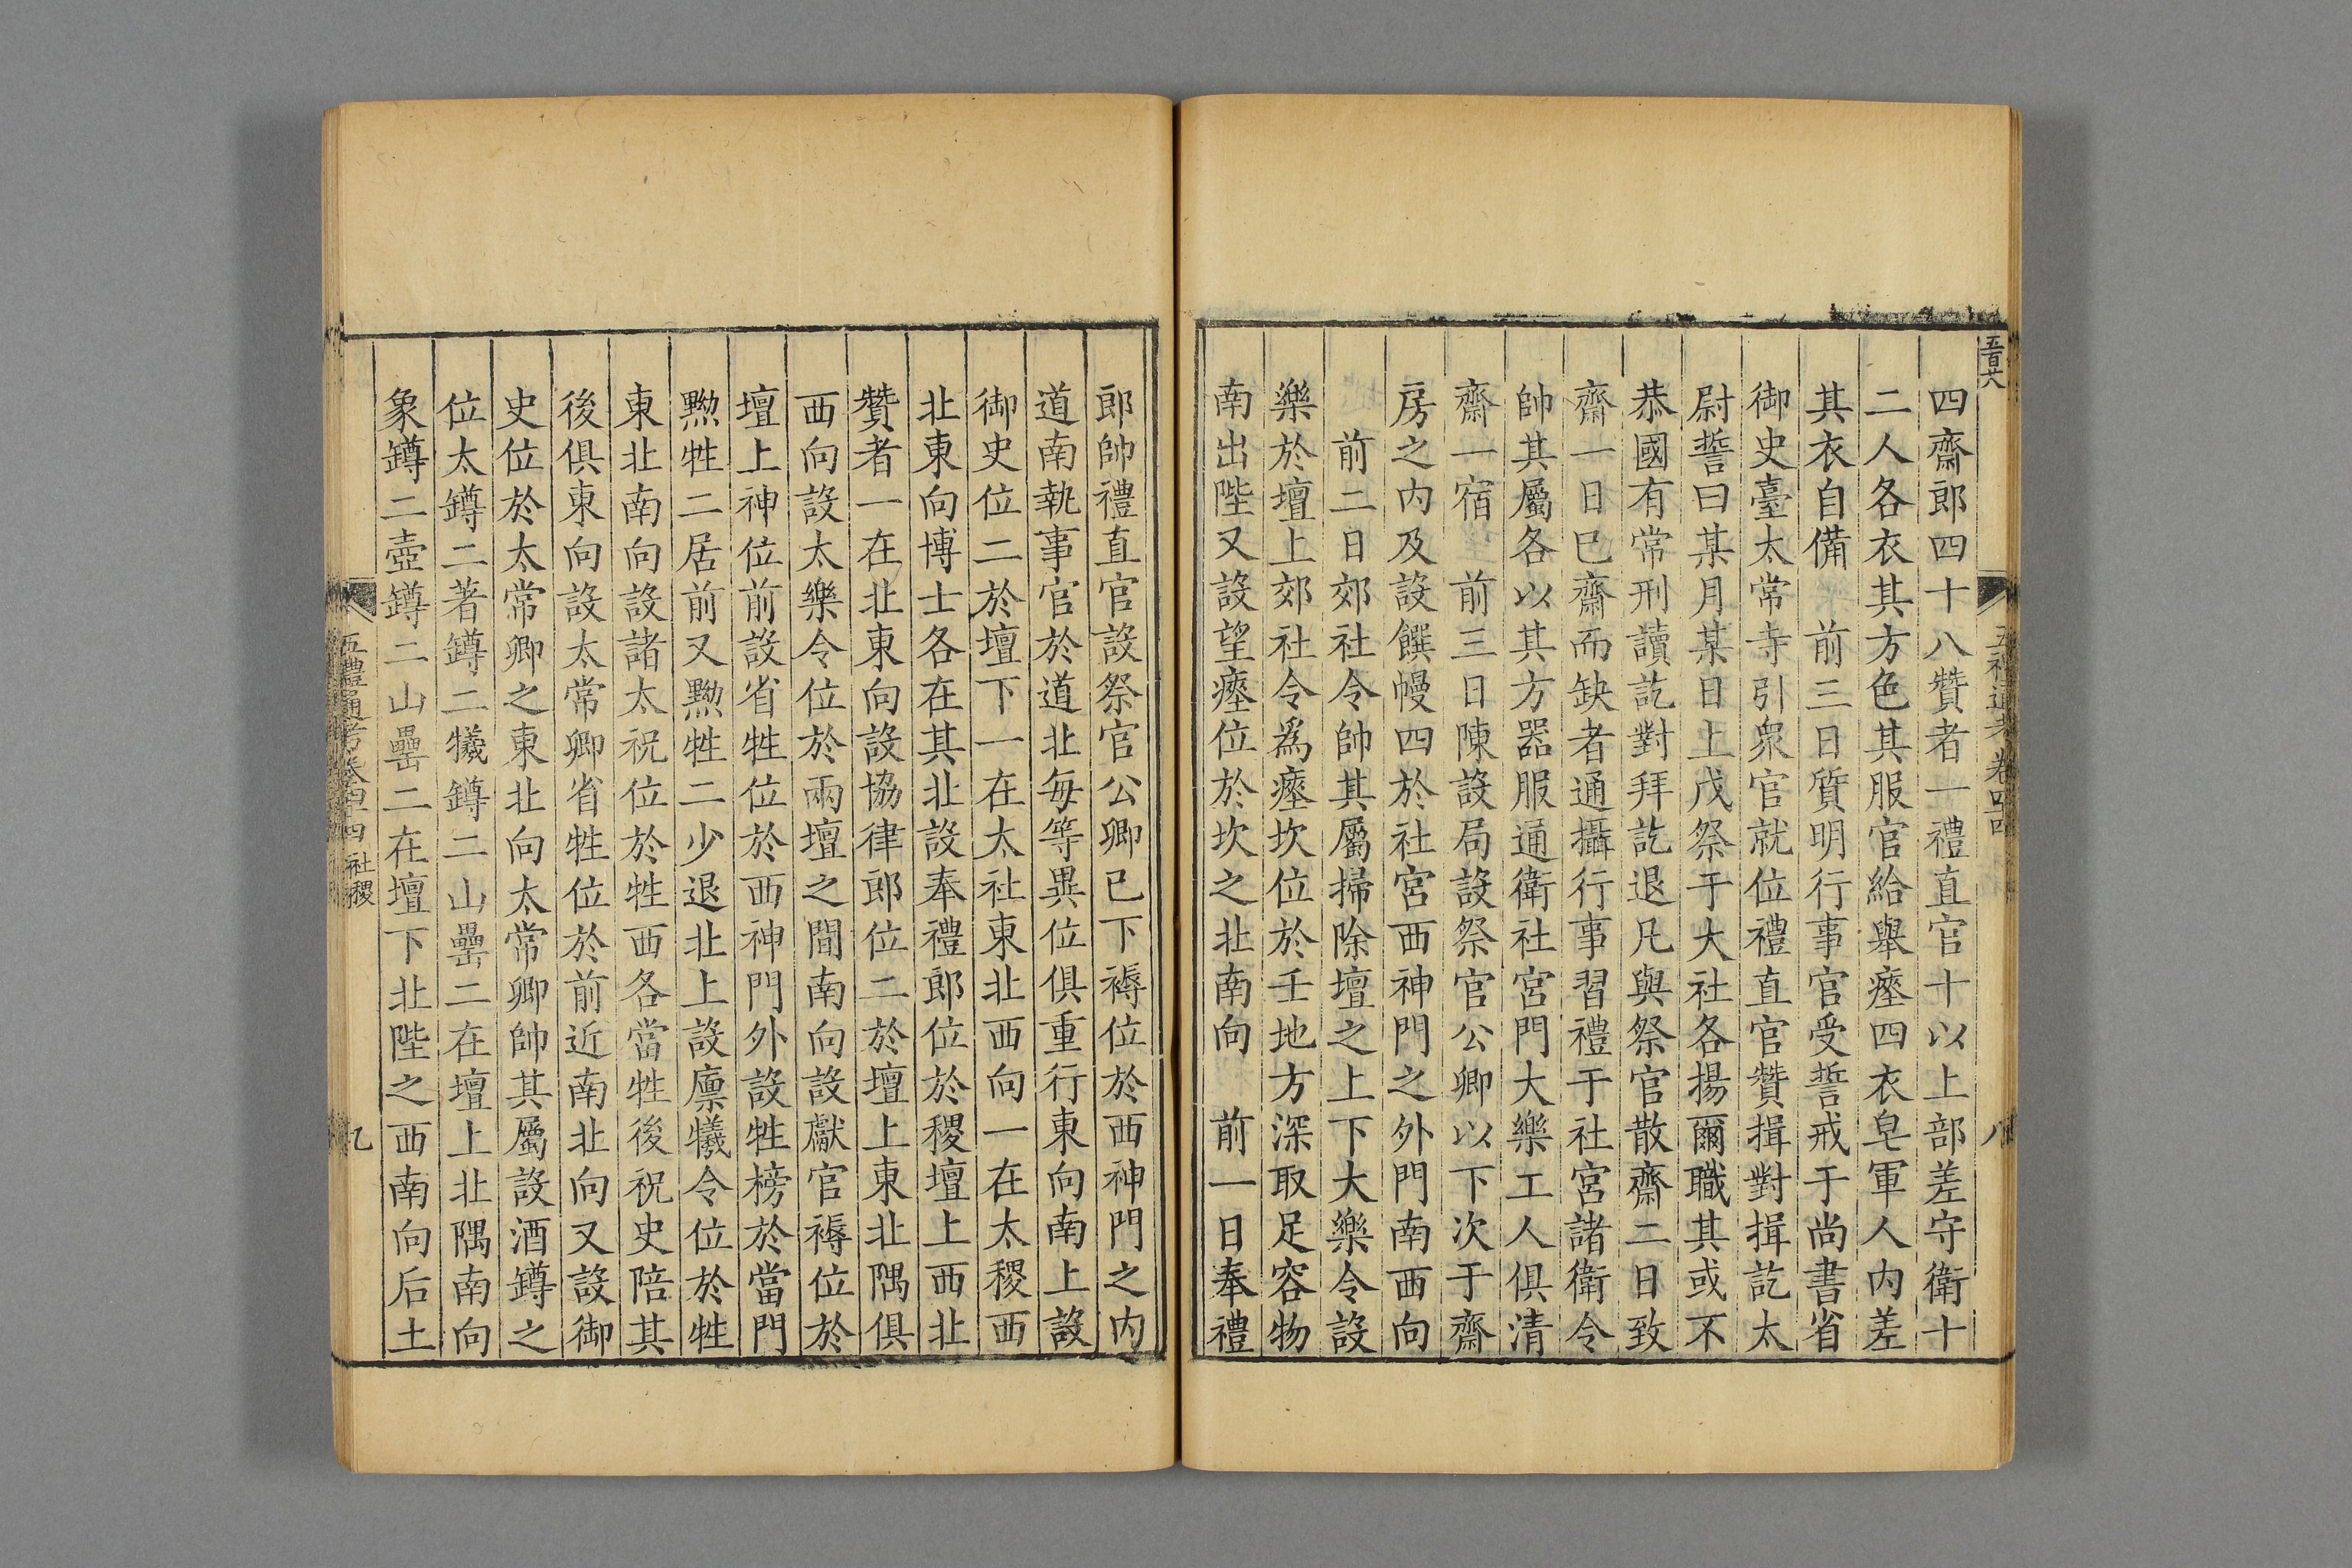 四齋郎四十八贊者一禮直官十以上部差守衛十
二人各衣其方色其服官給舉瘞四衣皂軍人内差
其衣自備　前三日質明行事官受誓戒于尚書省
御史臺太常寺引衆官就位禮直官贊揖對揖訖太
尉誓曰某月某日上戊祭于大社各揚爾職其或不
恭國有常刑讀訖對拜訖退凡與祭官散齋二日致
齋一日巳齋而缺者通攝行事習禮于社宮諸衛令
帥其屬各以其方器服通衛社宮門大樂工人俱清
齋一宿　前三日陳設局設祭官公卿以下次于齋
房之内及設饌幔四於社宮西神門之外門南西向
前二日郊社令帥其屬掃除壇之上下大樂令設
樂於壇上郊社令爲瘞坎位於壬地方深取足容物
南出陛又設望瘞位於坎之北南向　前一日奉禮
五禮通考 卷四十四
八
郎帥禮直官設祭官公卿已下褥位於西神門之内
道南執事官於道北每等異位俱重行東向南上設
御史位二於壇下一在太社東北西向一在太稷西
北東向博士各在其北設奉禮郎位於稷壇上西北
贊者一在北東向設協律郎位二於壇上東北隅俱
西向設太樂令位於兩壇之間南向設獻官褥位於
壇上神位前設省牲位於西神門外設牲榜於當門
黝牲二居前又黝牲二少退北上設廪犧令位於牲
東北南向設諸太祝位於牲西各當牲後祝史陪其
後俱東向設太常卿省牲位於前近南北向又設御
史位於太常卿之東北向太常卿帥其屬設酒罇之
位太罇二著罇二犧罇二山罍二在壇上北隅南向
象罇二壺罇二山罍二在壇下北陛之西南向后土
五禮通考卷四十四 社稷
九